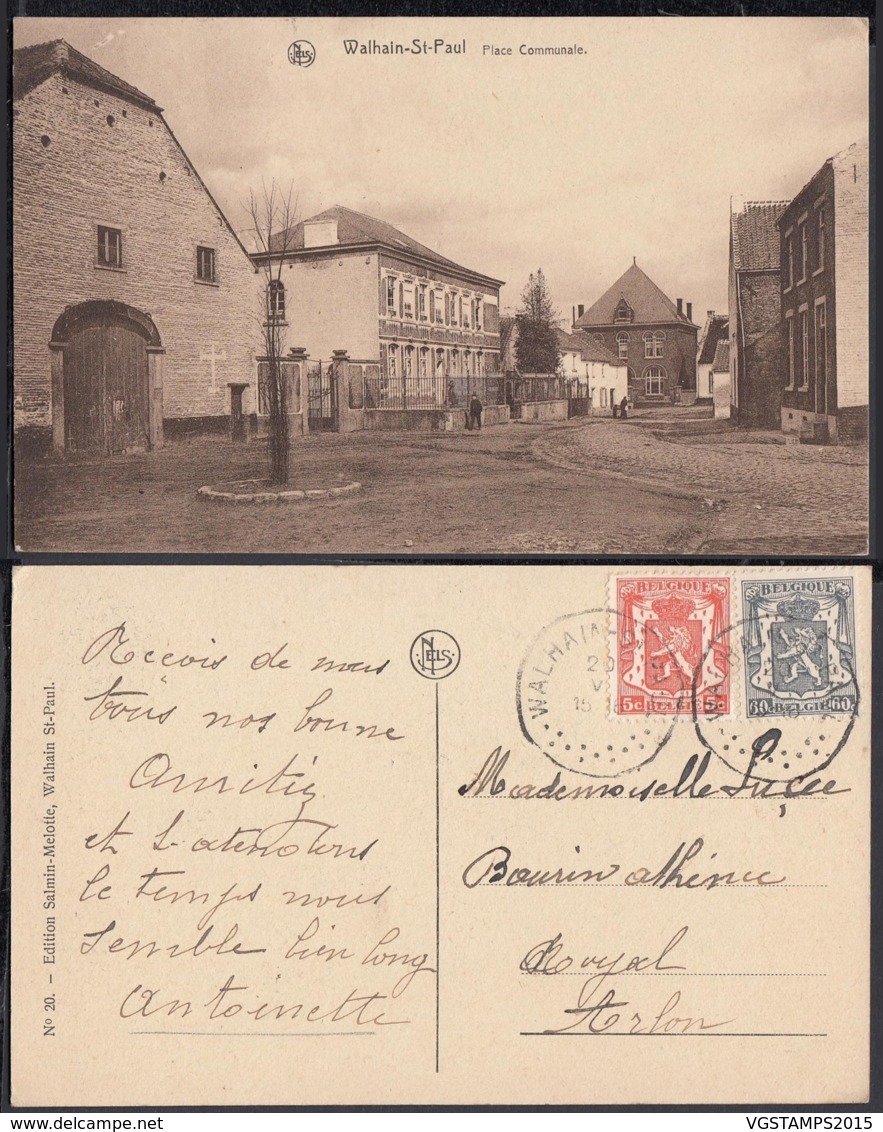 NELS
Walhain-St-Paul Place Communale.
Nº 20. — Edition Salmin-Melotte, Walhain St-Paul.
Recois de nous
tous nos bonne
Amitiz
et t'attendons
le temps nous
semble bien long
Antoinette
NELS
BELGIQUE
5c BELGIË 5c
BELGIQUE
60c BELGIË 60c
WALHAIN
20
15
Mademoiselle Luçee
Bourin athénee
Royal
Arlon
VGSTAMPS2015